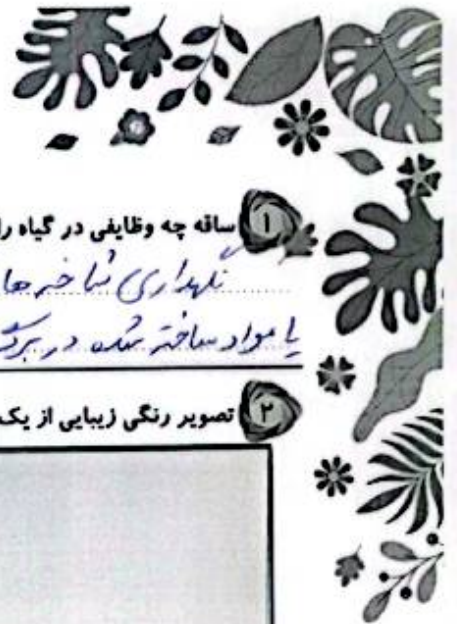 ۱ ساقه چه وظایفی در گیاه را
نگهداری شاخه‌ها
یا مواد ساخته شده در برگ
۲ تصویر رنگی زیبایی از یک